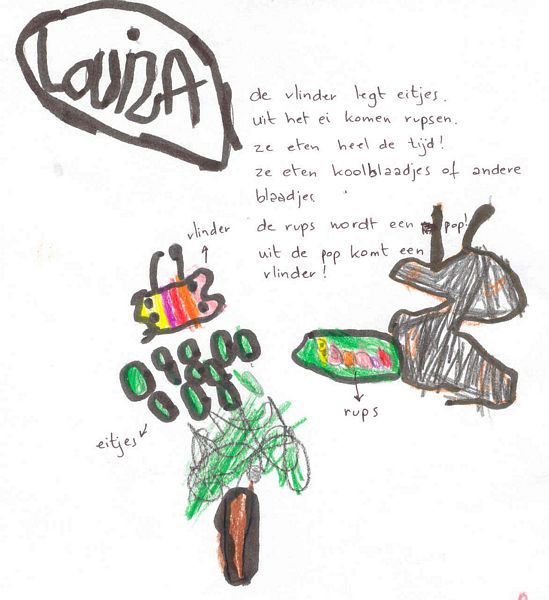 LOUiZA
de vlinder legt eitjes.
uit het ei komen rupsen.
ze eten heel de tijd!
ze eten koolblaadjes of andere
blaadjes
de rups wordt een pop!
uit de pop komt een
vlinder!
vlinder
eitjes
rups